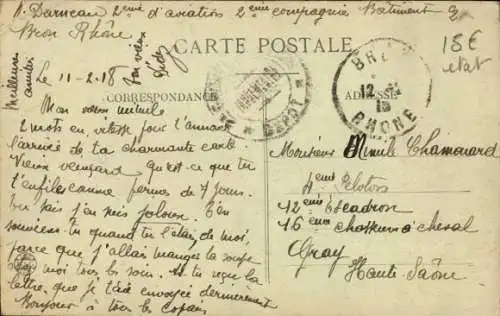 D. Darneau 2eme d'aviation 2eme compagnie Batiment
Bron Rhône
CARTE POSTALE
15€
etat
Le 11-2-18
Ton vieux
Meilleure
amitié
CORRESPONDANCE
ADRESSE
DÉPOT
BRON
12
18
RHONE
Mon vieux mimile
2 mots en vitesse pour t'annoncer
l'arrivée de ta charmante carte
Vieux veinard qu'est ce que tu
t'enfiles comme fermes de 7 jours.
tu sais j'en suis jaloux. T'en
souviens tu quand tu l'étais, de moi,
parce que j'allais manger la soupe
moi tous les soirs. As tu reçu la
lettre, que je t'ai envoyée dernièrement
Bonjour à tous les copains
Monsieur Emile Chamouard
4eme Peloton
12eme Escadron
16eme chasseurs à cheval
Gray
Haute Saône